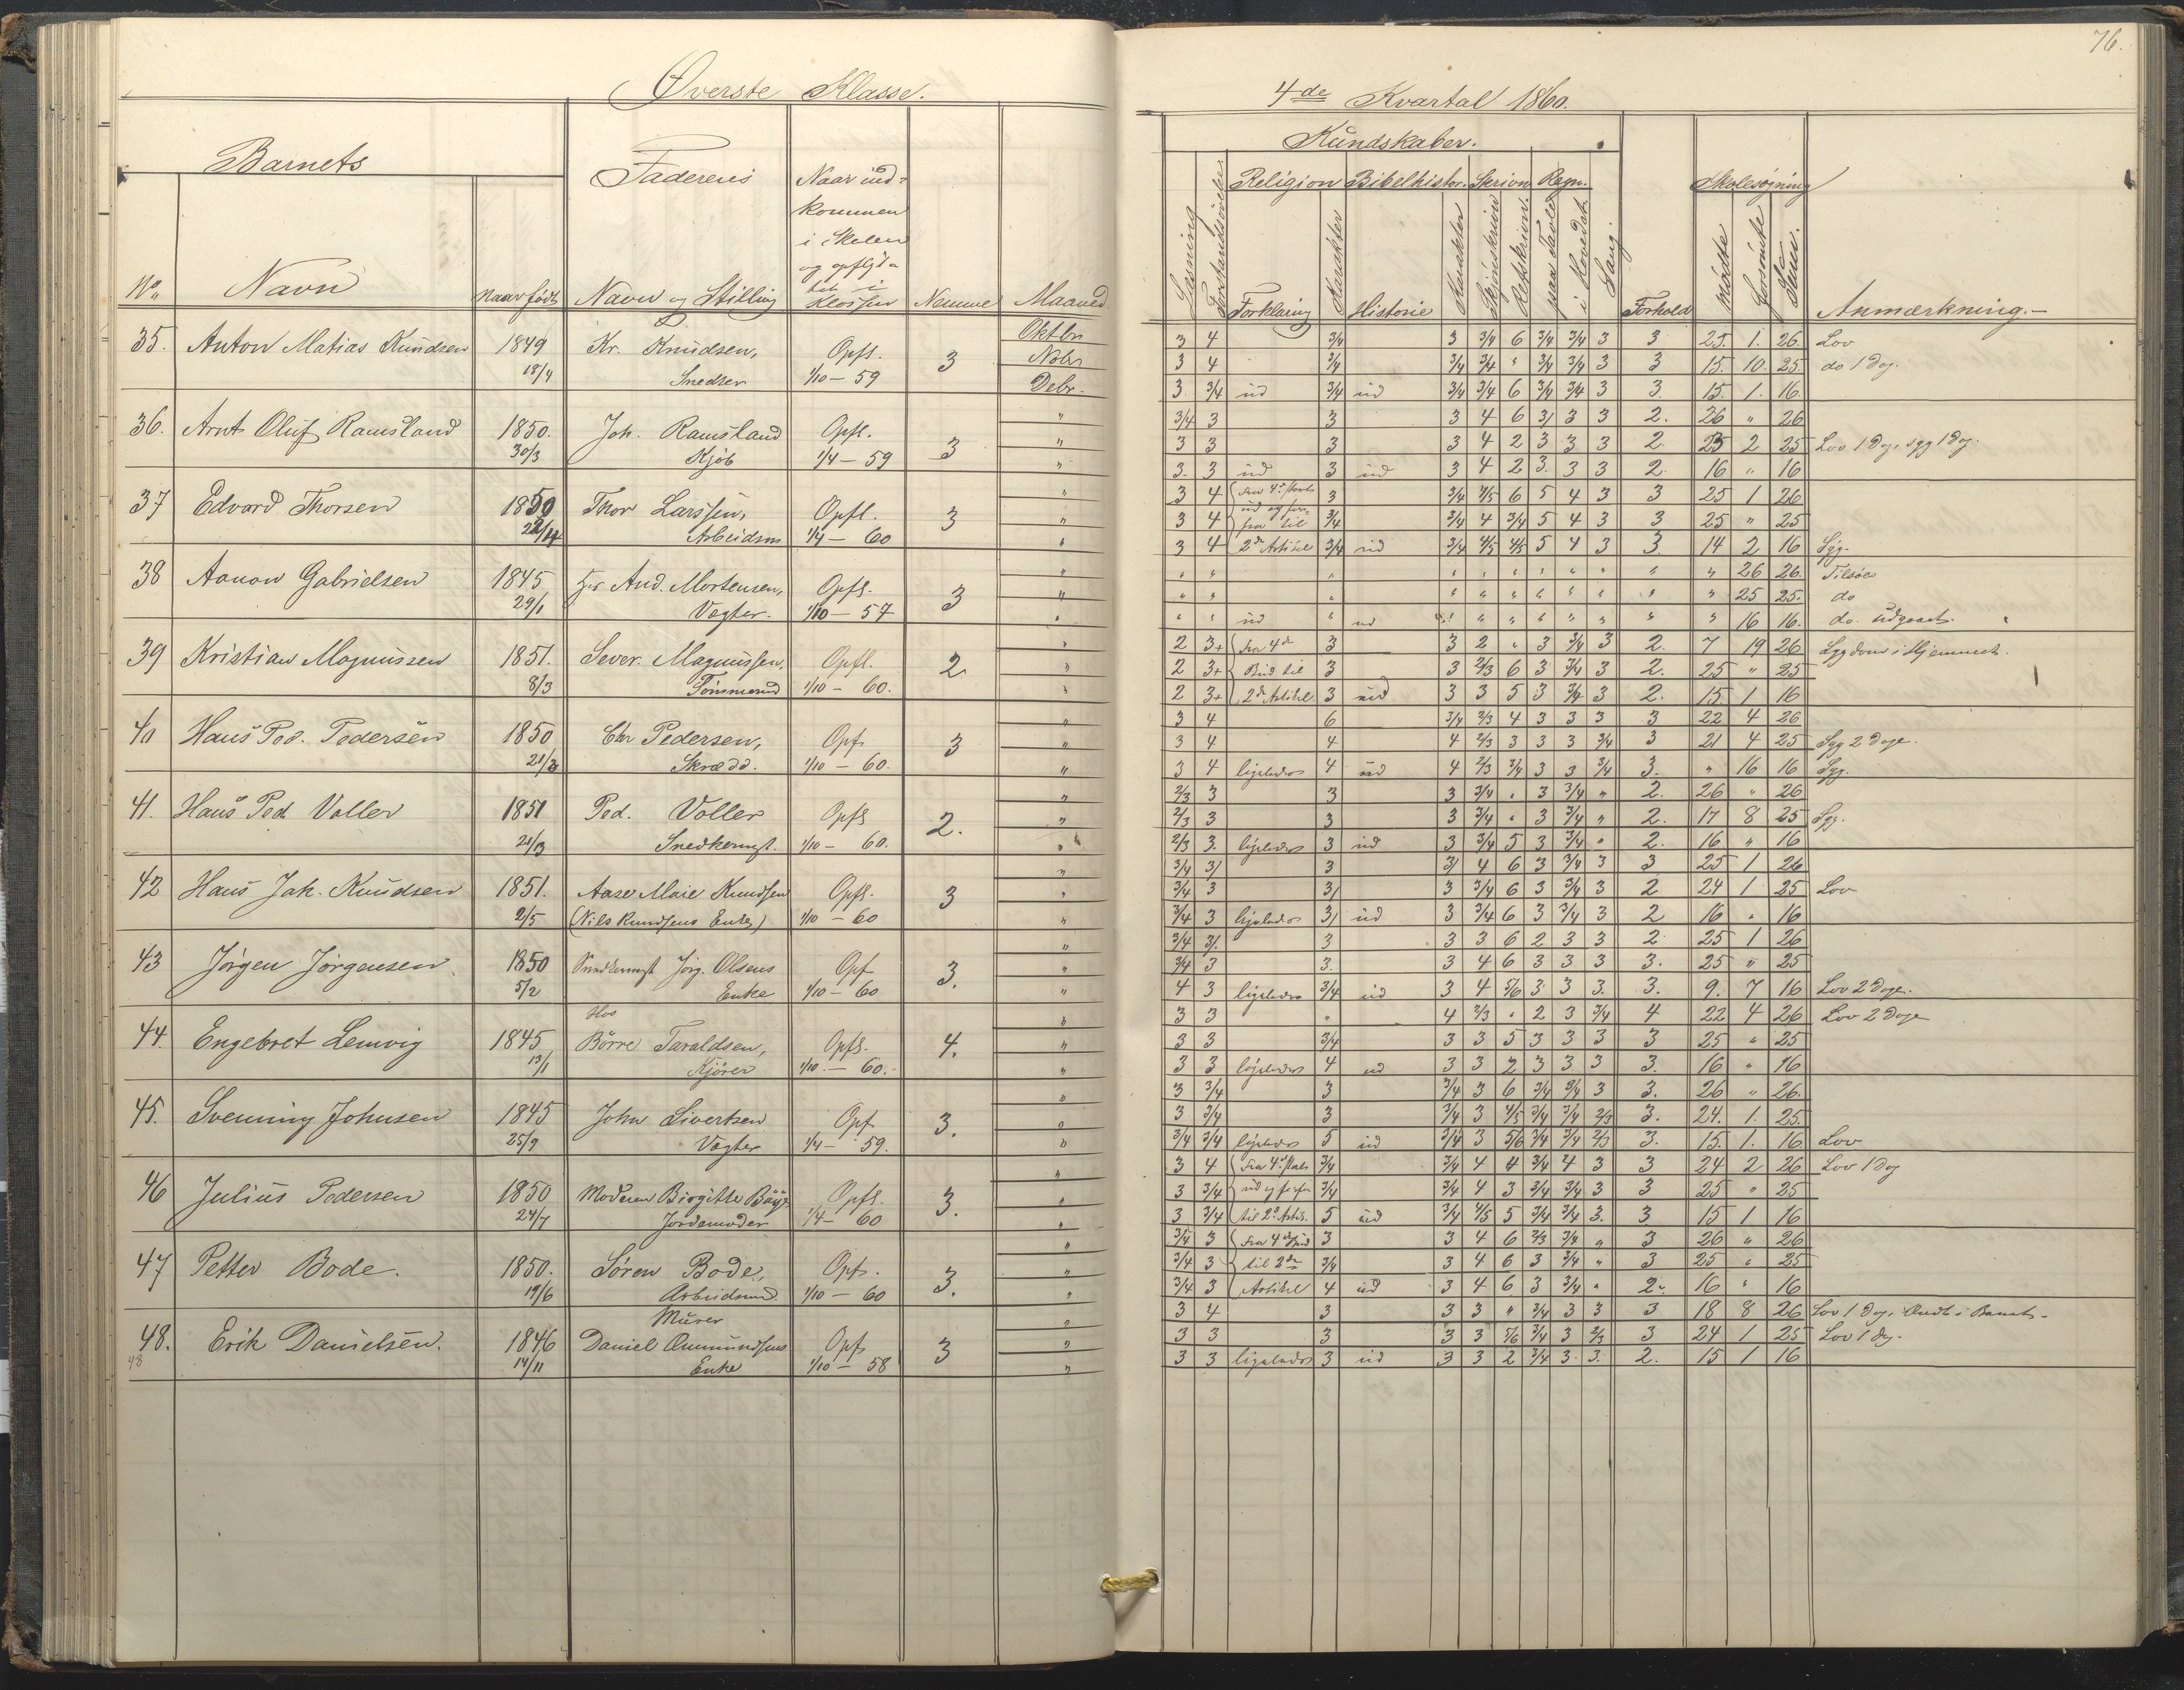 Øverste Klasse.
Barnets
Faderens
Naar ind-
kommen
i Skolen
og opflyt-
tet i
Klassen
No. Navn Naar født Navn og Stilling Nemme Maaned
35. Anton Matias Knudsen 1849 Kr. Knudsen, Opfl. 3 Oktbr
Nobr
18/4 Snedker 1/10 - 59 Debr.
36. Arnt Oluf Ramsland 1850. Joh. Ramsland Opfl. 3 "
30/3 Kjøb 1/4 - 59 "
37 Edvard Thorsen 1850 Thor Larssen, Opfl. 3 "
22/4 Arbeidsm 1/4 - 60 "
38 Aanon Gabrielsen 1845 And. Mortensen, Opfl. 3 "
29/1 Vægter. 1/10 - 57 "
39 Kristian Magnussen 1851. Sever. Magnussen, Opfl. 2 "
8/3 Tømmermd 1/10 - 60. "
40 Hans Ped. Pedersen 1850 Chr Pedersen, Opf. 3 "
21/3 Skrædd. 1/10 - 60. "
41. Hans Ped. Voller 1851 Ped. Voller Opfl 2. "
21/3 Snedkermst. 1/10 - 60. "
42 Hans Jak. Knudsen 1851. Aase Marie Knudsen Opfl. 3 "
2/5 (Nils Knudsens Enke) 1/10 - 60 "
43 Jørgen Jørgensen. 1850 Snedkermst Jørg. Olsens Opf 3. "
5/2 Enke 1/10 - 60 "
Hos
44. Engebret Lemvig 1845 Børre Taraldsen, Opfl. 4. "
13/1 Kjører 1/10 - 60. "
45. Svenning Johnsen 1845 John Sivertsen Opf 3. "
25/9 Vægter 1/4 - 59. "
46 Julius Pedersen 1850 Moderen Birgitte Opfl. 3. "
24/7 Jordemoder 1/4 - 60 "
47 Petter Bode. 1850. Søren Bode, Opf. 3. "
19/6 Arbeidsmd. 1/10 - 60 "
Murer
48. Erik Danielsen. 1846 Daniel Aanmundsens Opf. 3 "
48 14/11 Enke 1/10 - 58 "
76.
4de Kvartal 1860.
Kundskaber.
Religion Bibelhistor. Skrivn. Regn. Skolesøgning
Læsning Forstandsøvelse Forklaring Karakter Historie Karakter Skjønskrivn Retskrivn. paa Tavle i Hovedet. Sang. Forhold Mødte Forsømte Sum. Anmærkning.-
3 4 3/4 3 3/4 6 3/4 3/4 3 3 25. 1. 26. Lov
3 4 3/4 3/4 3/4 " 3/4 3/4 3 3 15. 10. 25 do 1 Dag.
3 3/4 ud 3/4 ud 3/4 3/4 6 3/4 3/4 3 3. 15. 1. 16.
3/4 3 3 3 4 6 3/ 3 3 2. 26 " 26
3 3 3 3 4 2 3 3 3 2. 23 2 25 Lov 1 Dag, syg 1 Dag.
3. 3 ud 3 ud 3 4 2 3. 3 3 2. 16 " 16
3 4 Fra 4de Parts 3 3/4 4/5 6 5 4 3 3 25 1 26
3 4 ud og for- fra til 3/4 3/4 4 3/4 5 4 3 3 25 " 25
3 4 2den Artikel 3/4 ud 3/4 4/5 4/5 5 4 3 3 14 2 16 Syg.
" " " " " " " " " " " 26 26. Tilsøes
" " " " " " " " " " " 25 25. do
" " ud " ud " " " " " " " " 16 16. do. udgaaet.
2 3+ Fra 4de 3 3 2 " 3 3/4 3 2. 7 19 26 Sygdom i Hjemmet.
2 3+ Bud til 3 3 2/3 6 3 3/4 3 2. 25 " 25
2 3+ 2den Artikel 3 ud 3 3 5 3 3/4 3 2. 15 1 16
3 4 6 3/4 2/3 4 3 3 3 3 22 4 26
3 4 4 4 2/3 3 3 3 3/4 3 21 4 25 Syg 2 Dage.
3 4 ligeledes 4 ud 4 2/3 3/4 3 3 3/4 3. " 16 16 Syg.
2/3 3 3 3 3/4 " 3 3/4 " 2. 26 " 26
2/3 3 3 3 3/4 " 3 3/4 " 2. 17 8 25 Syg.
2/3 3. ligeledes 3 ud 3 3/4 5 3 3/4 " 2. 16 " 16
3/4 3/ 3 3/ 4 6 3 3/4 3 3 25 1 26
3/4 3 3/ 3 3/4 6 3 3/4 3 2 24 1 25 Lov
3/4 3 ligeledes 3/ ud 3 3/4 6 3 3/4 3 2 16 " 16
3/4 3/. 3 3 3 6 2 3 3 2 25 1 26
3/4 3 3. 3 4 6 3 3 3 3. 25 " 25
4 3 ligeledes 3/4 ud 3 4 5/6 3 3 3. 3. 9. 7 16 Lov 2 Dage.
3 3 " 4 2/3 " 2 3 3/4 4 22 4 26 Lov 2 Dage
3 3 3/4 3 3 5 3 3 3 3 25 " 25
3 3 ligeledes 4 ud 3 3 2 3 3 3 3. 16 " 16
3 3/4 3 3/4 3 6 3/4 3/4 3 3. 26 " 26.
3 3/4 3 3/4 3 4/5 3/4 3/4 2/3 3. 24. 1. 25
3/4 3/4 ligeledes 5 ud 3/4 3 5/6 3/4 3/4 2/3 3. 15. 1. 16 Lov
3 4 Fra 4de Parts 3/4 3/4 4 4 3/4 4 3 3 24 2 26 Lov 1 Dag
3 3/4 ud og forfra 3/4 3/4 4 3 3/4 3/4 3 3 25 " 25
3 3/4 til 2den Artk. 5 ud 3/4 4/5 5 3/4 3/4 3. 3 15 1 16
3/4 3 Fra 4de Bud 3 3 4 6 2/3 3/4 " 3 26 " 26
3/4 3 til 2den 3/4 3 4 6 3 3/4 " 3 25 " 25
3/4 3 Artikel 4 ud 3 4 6 3 3/4 " 2. 16 " 16
3 4 3 3 3 " 3/4 3 3 3 18 8 26 Lov 1 Dag, Ondt i Benet.-
3 3 3 3 3 5/6 3/4 3 2/3 3 24 1 25 Lov 1 Dg.
3 3 ligeledes 3 ud 3 3 2 3/4 3 3. 2. 15 1 16